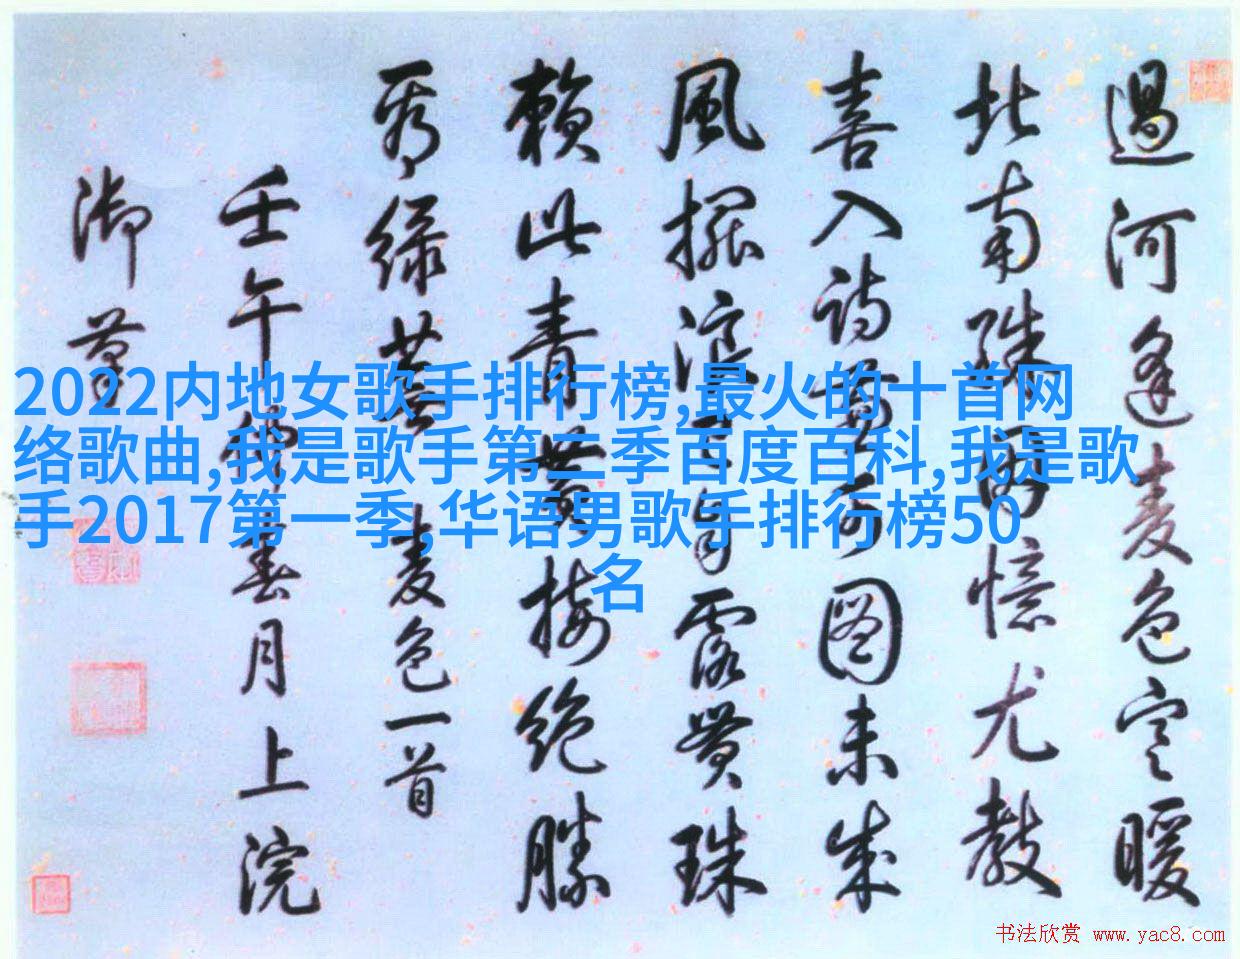 過河逢麦色寒暖
北南殊因憶尤教
喜入詩
可圖未成
風擺浪
自露貫珠
賴此青
接絶勝
秀緑
麦色一首
壬午
春月上浣
御筆
2022内地女歌手排行榜,最火的十首网
络歌曲,我是歌手第二季百度百科,我是歌
手2017第一季,华语男歌手排行榜50
名
书法欣赏 www.yac8.com